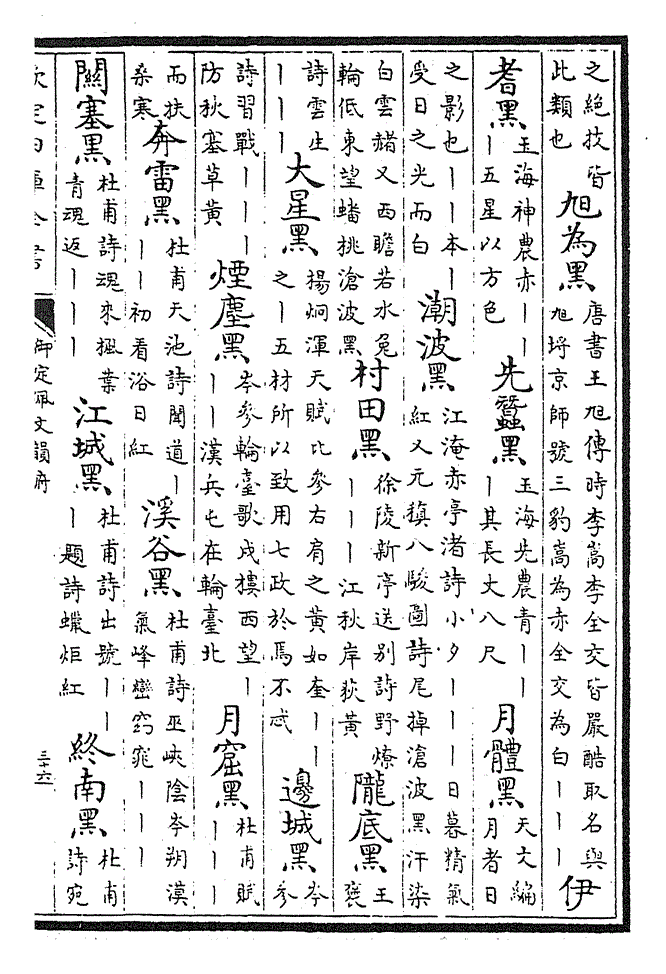 之絶技皆
此類也
旭為黑
唐書王旭傳時李嵩李全交皆嚴酷取名與
旭埒京師號三豹嵩為赤全交為白丨丨丨
伊
耆黑
玉海神農赤丨丨
丨五星以方色
先蠶黑
玉海先農青丨丨
丨其長丈八尺
月體黑
天文編
月者日
之影也丨丨本丨
受日之光而白
潮波黑
江淹赤亭渚詩小夕丨丨丨日暮精氣
紅又元稹八駿圖詩尾掉滄波黑汗染
白雲赭又西瞻若水兔
輪低東望蟠桃滄波黑
村田黑
徐陵新亭送别詩野燎
丨丨丨江秋岸荻黄
隴底黑
王
襃
詩雲生
丨丨丨
大星黑
楊炯渾天賦比參右肩之黄如奎丨丨
之丨五材所以致用七政於焉不忒
邊城黑
岑
參
詩習戰丨丨丨
防秋塞草黄
煙塵黑
岑參輪臺歌戍樓西望丨
丨丨漢兵屯在輪臺北
月窟黑
杜甫賦
丨丨丨
而扶
桑寒
奔雷黑
杜甫天池詩聞道丨
丨丨初看浴日紅
溪谷黑
杜甫詩巫峽陰岑朔漠
氣峰巒窈窕丨丨丨
關塞黑
杜甫詩魂來楓葉
青魂返丨丨丨
江城黑
杜甫詩出號丨丨
丨題詩蠟炬紅
終南黑
杜甫
詩宛
欽定四庫全書
御定佩文韻府
三十六